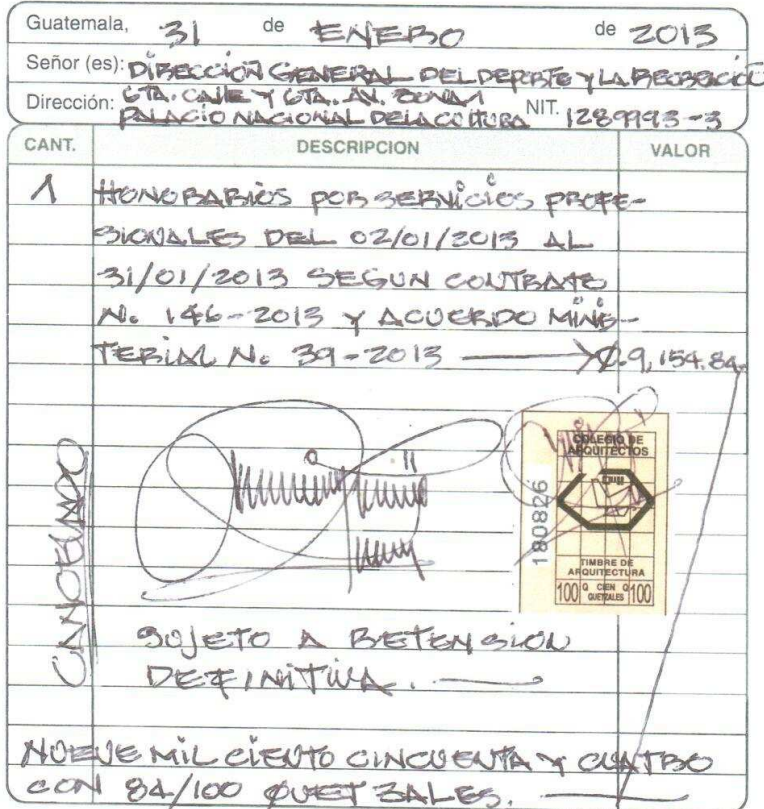 Guatemala, 31 de ENERO de 2013
Señor (es): DIRECCIÓN GENERAL DEL DEPORTE Y LA RECREACIÓN
Dirección: 6TA. CALLE Y 6TA. AV. ZONA 1
PALACIO NACIONAL DE LA CULTURA NIT. 1289993-3
CANT. DESCRIPCION VALOR
1 HONORARIOS POR SERVICIOS PROFE-
SIONALES DEL 02/01/2013 AL
31/01/2013 SEGUN CONTRATO
No. 146-2013 Y ACUERDO MINIS-
TERIAL No. 39-2013 Q.9,154.84
CANCELADO
180826
COLEGIO DE
ARQUITECTOS
TIMBRE DE
ARQUITECTURA
100 Q CIEN Q 100
QUETZALES
SUJETO A RETENSION
DEFINITIVA.
NUEVE MIL CIENTO CINCUENTA Y CUATRO
CON 84/100 QUETZALES.